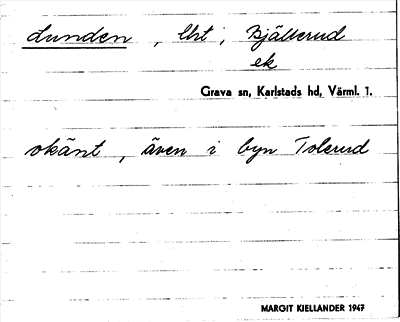 Lunden, lht, Bjälterud
ek
Grava sn, Karlstads hd, Värml. 1.
okänt, även i byn Tolerud
MARGIT KIELLANDER 1947